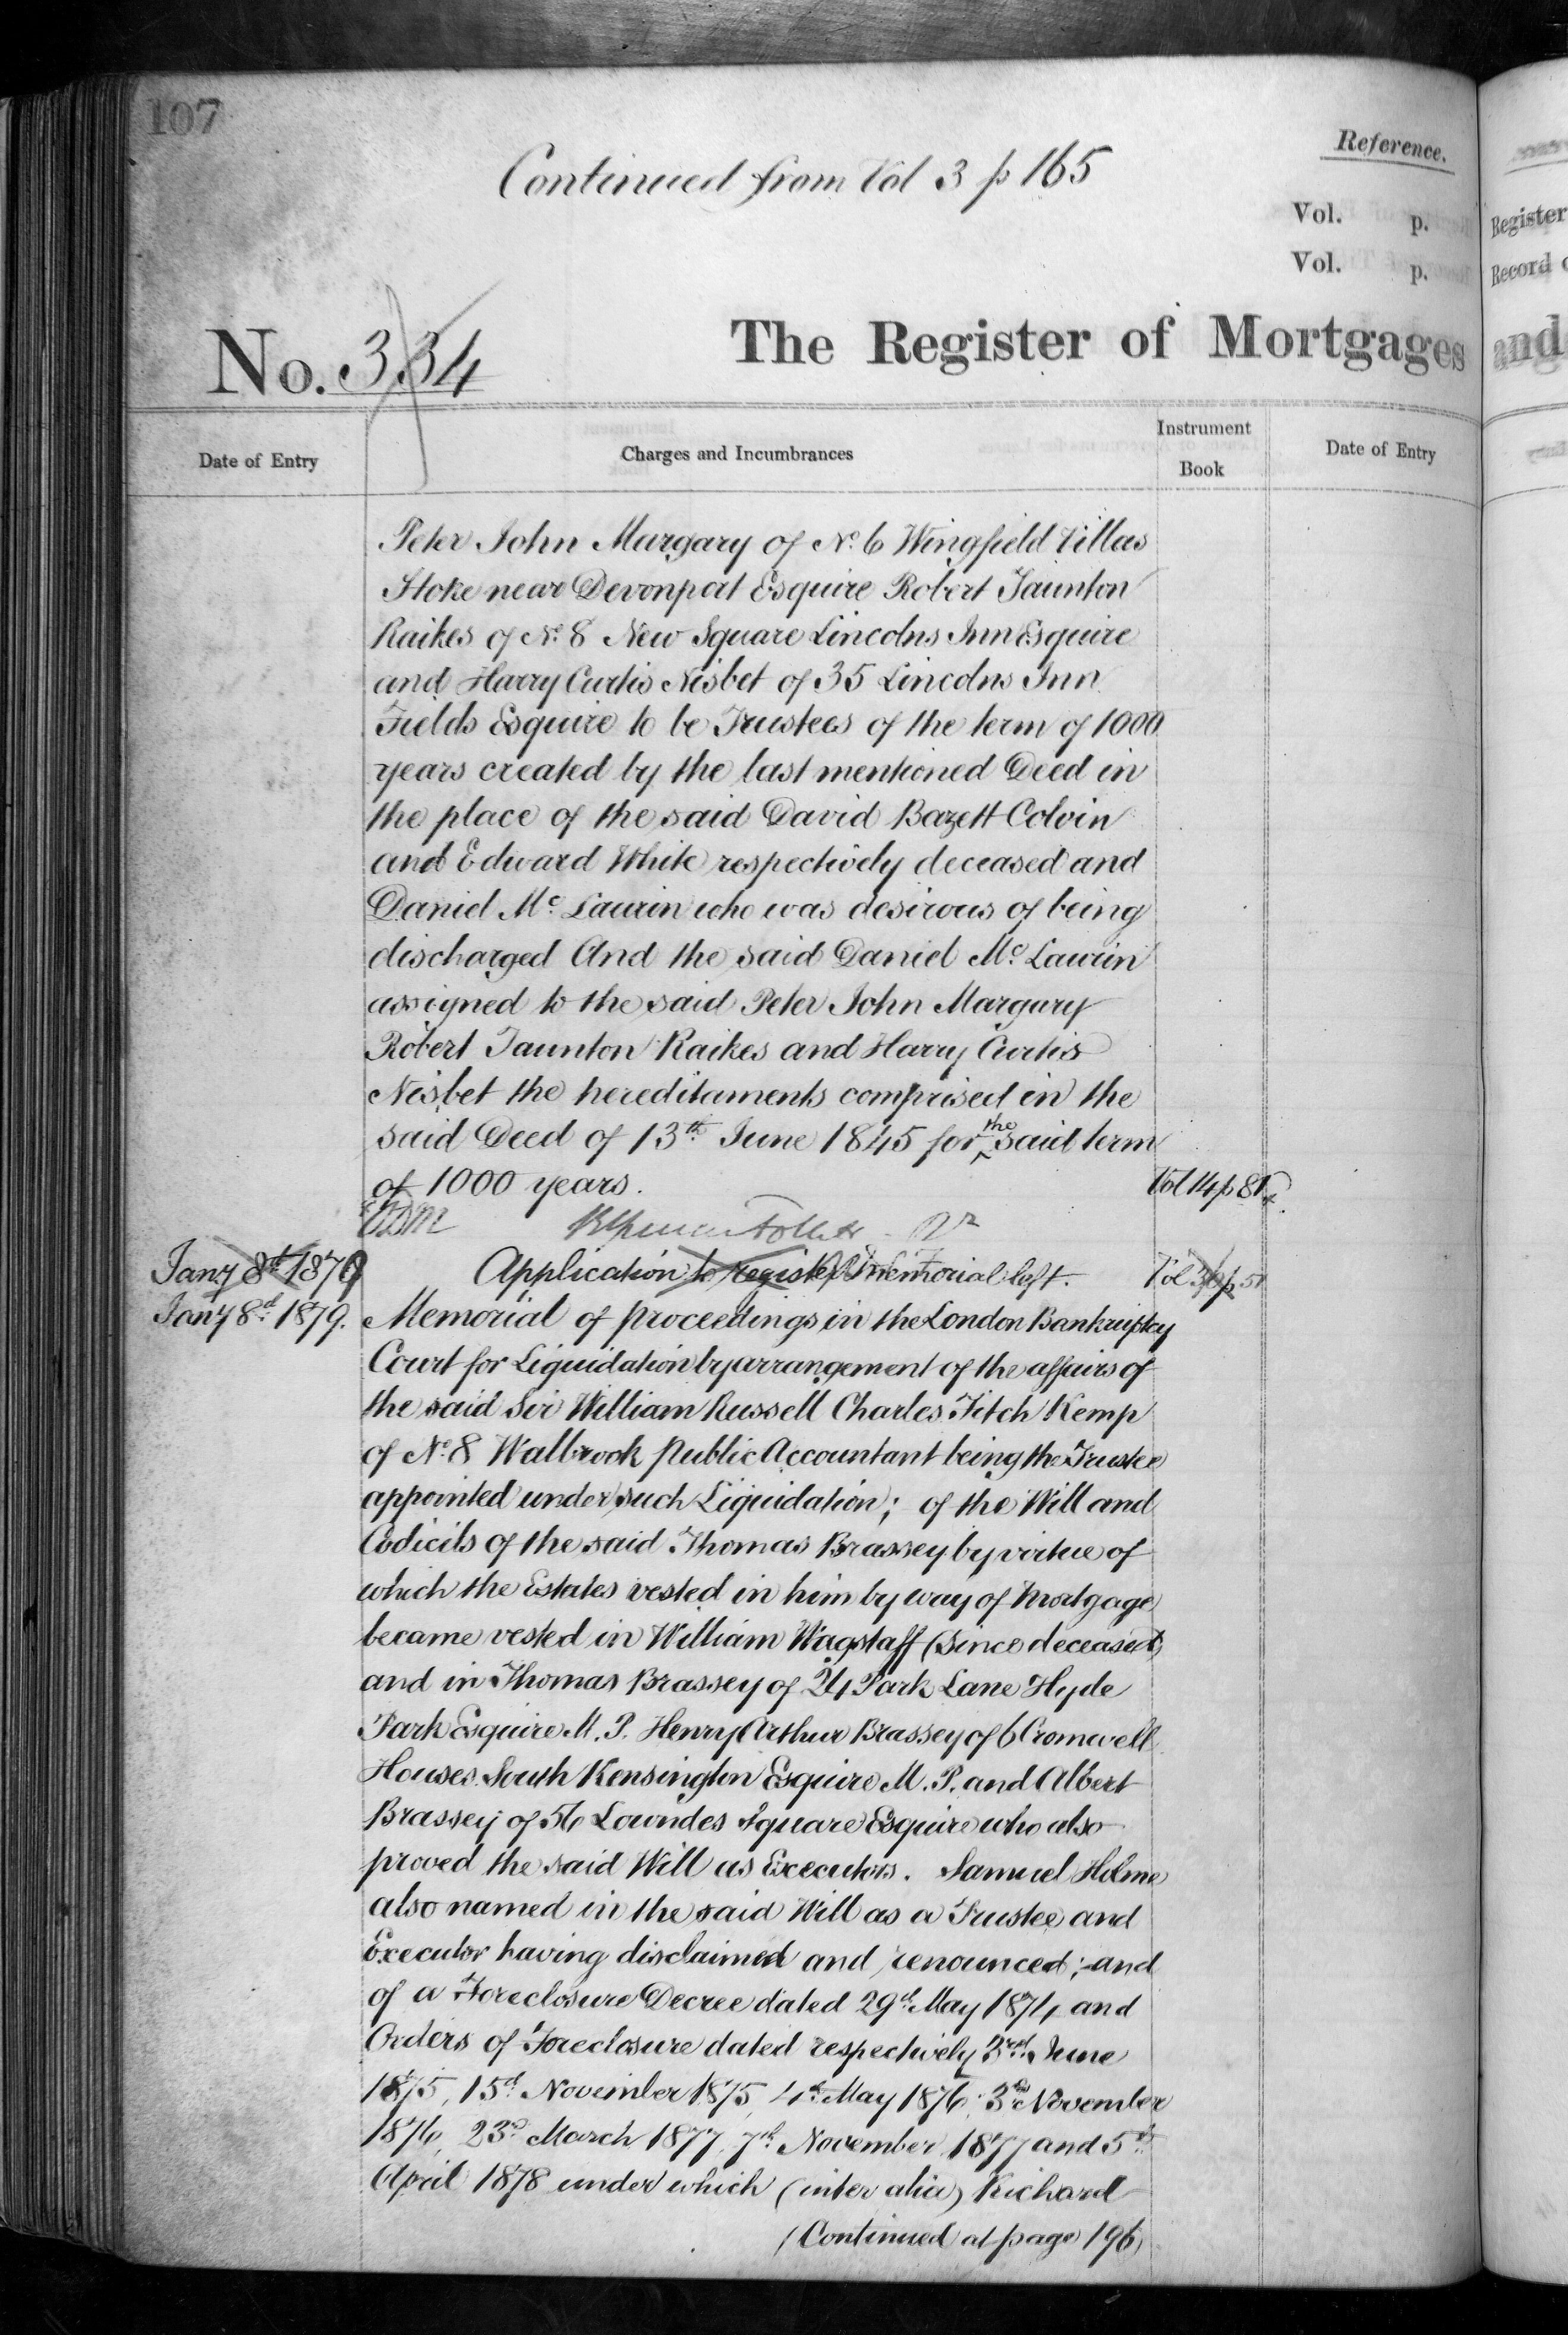 107
Continued from Vol 3 p 165
Reference.
Vol. p.
Vol. p.
Register
Record
No. 334
The Register of Mortgages
and
Date of Entry
Charges and Incumbrances
Instrument
Book
Date of Entry
Peter John Margary of No. 6 Wingfield Villas
Stoke near Devonport Esquire Robert Taunton
Raikes of No. 8 New Square Lincolns Inn Esquire
and Harry Curtis Nisbet of 35 Lincolns Inn
Fields Esquire to be Trustees of the term of 1000
years created by the last mentioned Deed in
the place of the said David Bazett Colvin
and Edward White respectively deceased and
Daniel Mc. Laurin who was desirous of being
discharged And the said Daniel Mc. Laurin
assigned to the said Peter John Margary
Robert Taunton Raikes and Harry Curtis
Nisbet the hereditaments comprised in the
said Deed of 13th June 1845 for the said term
of 1000 years.
Vol 14 p 81
Jany 8th 1879
Application to register memorial left.
Vol 30 p 51
Jany 8th 1879.
Memorial of proceedings in the London Bankruptcy
Court for Liquidation by arrangement of the affairs of
the said Sir William Russell Charles Fitch Kemp
of No. 8 Walbrook Public Accountant being the Trustee
appointed under such Liquidation; of the Will and
Codicils of the said Thomas Brassey by virtue of
which the Estates vested in him by way of Mortgage
became vested in William Wagstaff (since deceased)
and in Thomas Brassey of 24 Park Lane Hyde
Park Esquire M. P. Henry Arthur Brassey of 6 Cromwell
Houses South Kensington Esquire M. P. and Albert
Brassey of 56 Lowndes Square Esquire who also
proved the said Will as Executors. Samuel Holme
also named in the said Will as a Trustee and
Executor having disclaimed and renounced; and
of a Foreclosure Decree dated 29th May 1874 and
Orders of Foreclosure dated respectively 3rd June
1875, 15th November 1875, 4th May 1876, 3rd November
1876, 23rd March 1877, 7th November 1877 and 5th
April 1878 under which (inter alia) Richard
(Continued at page 196)